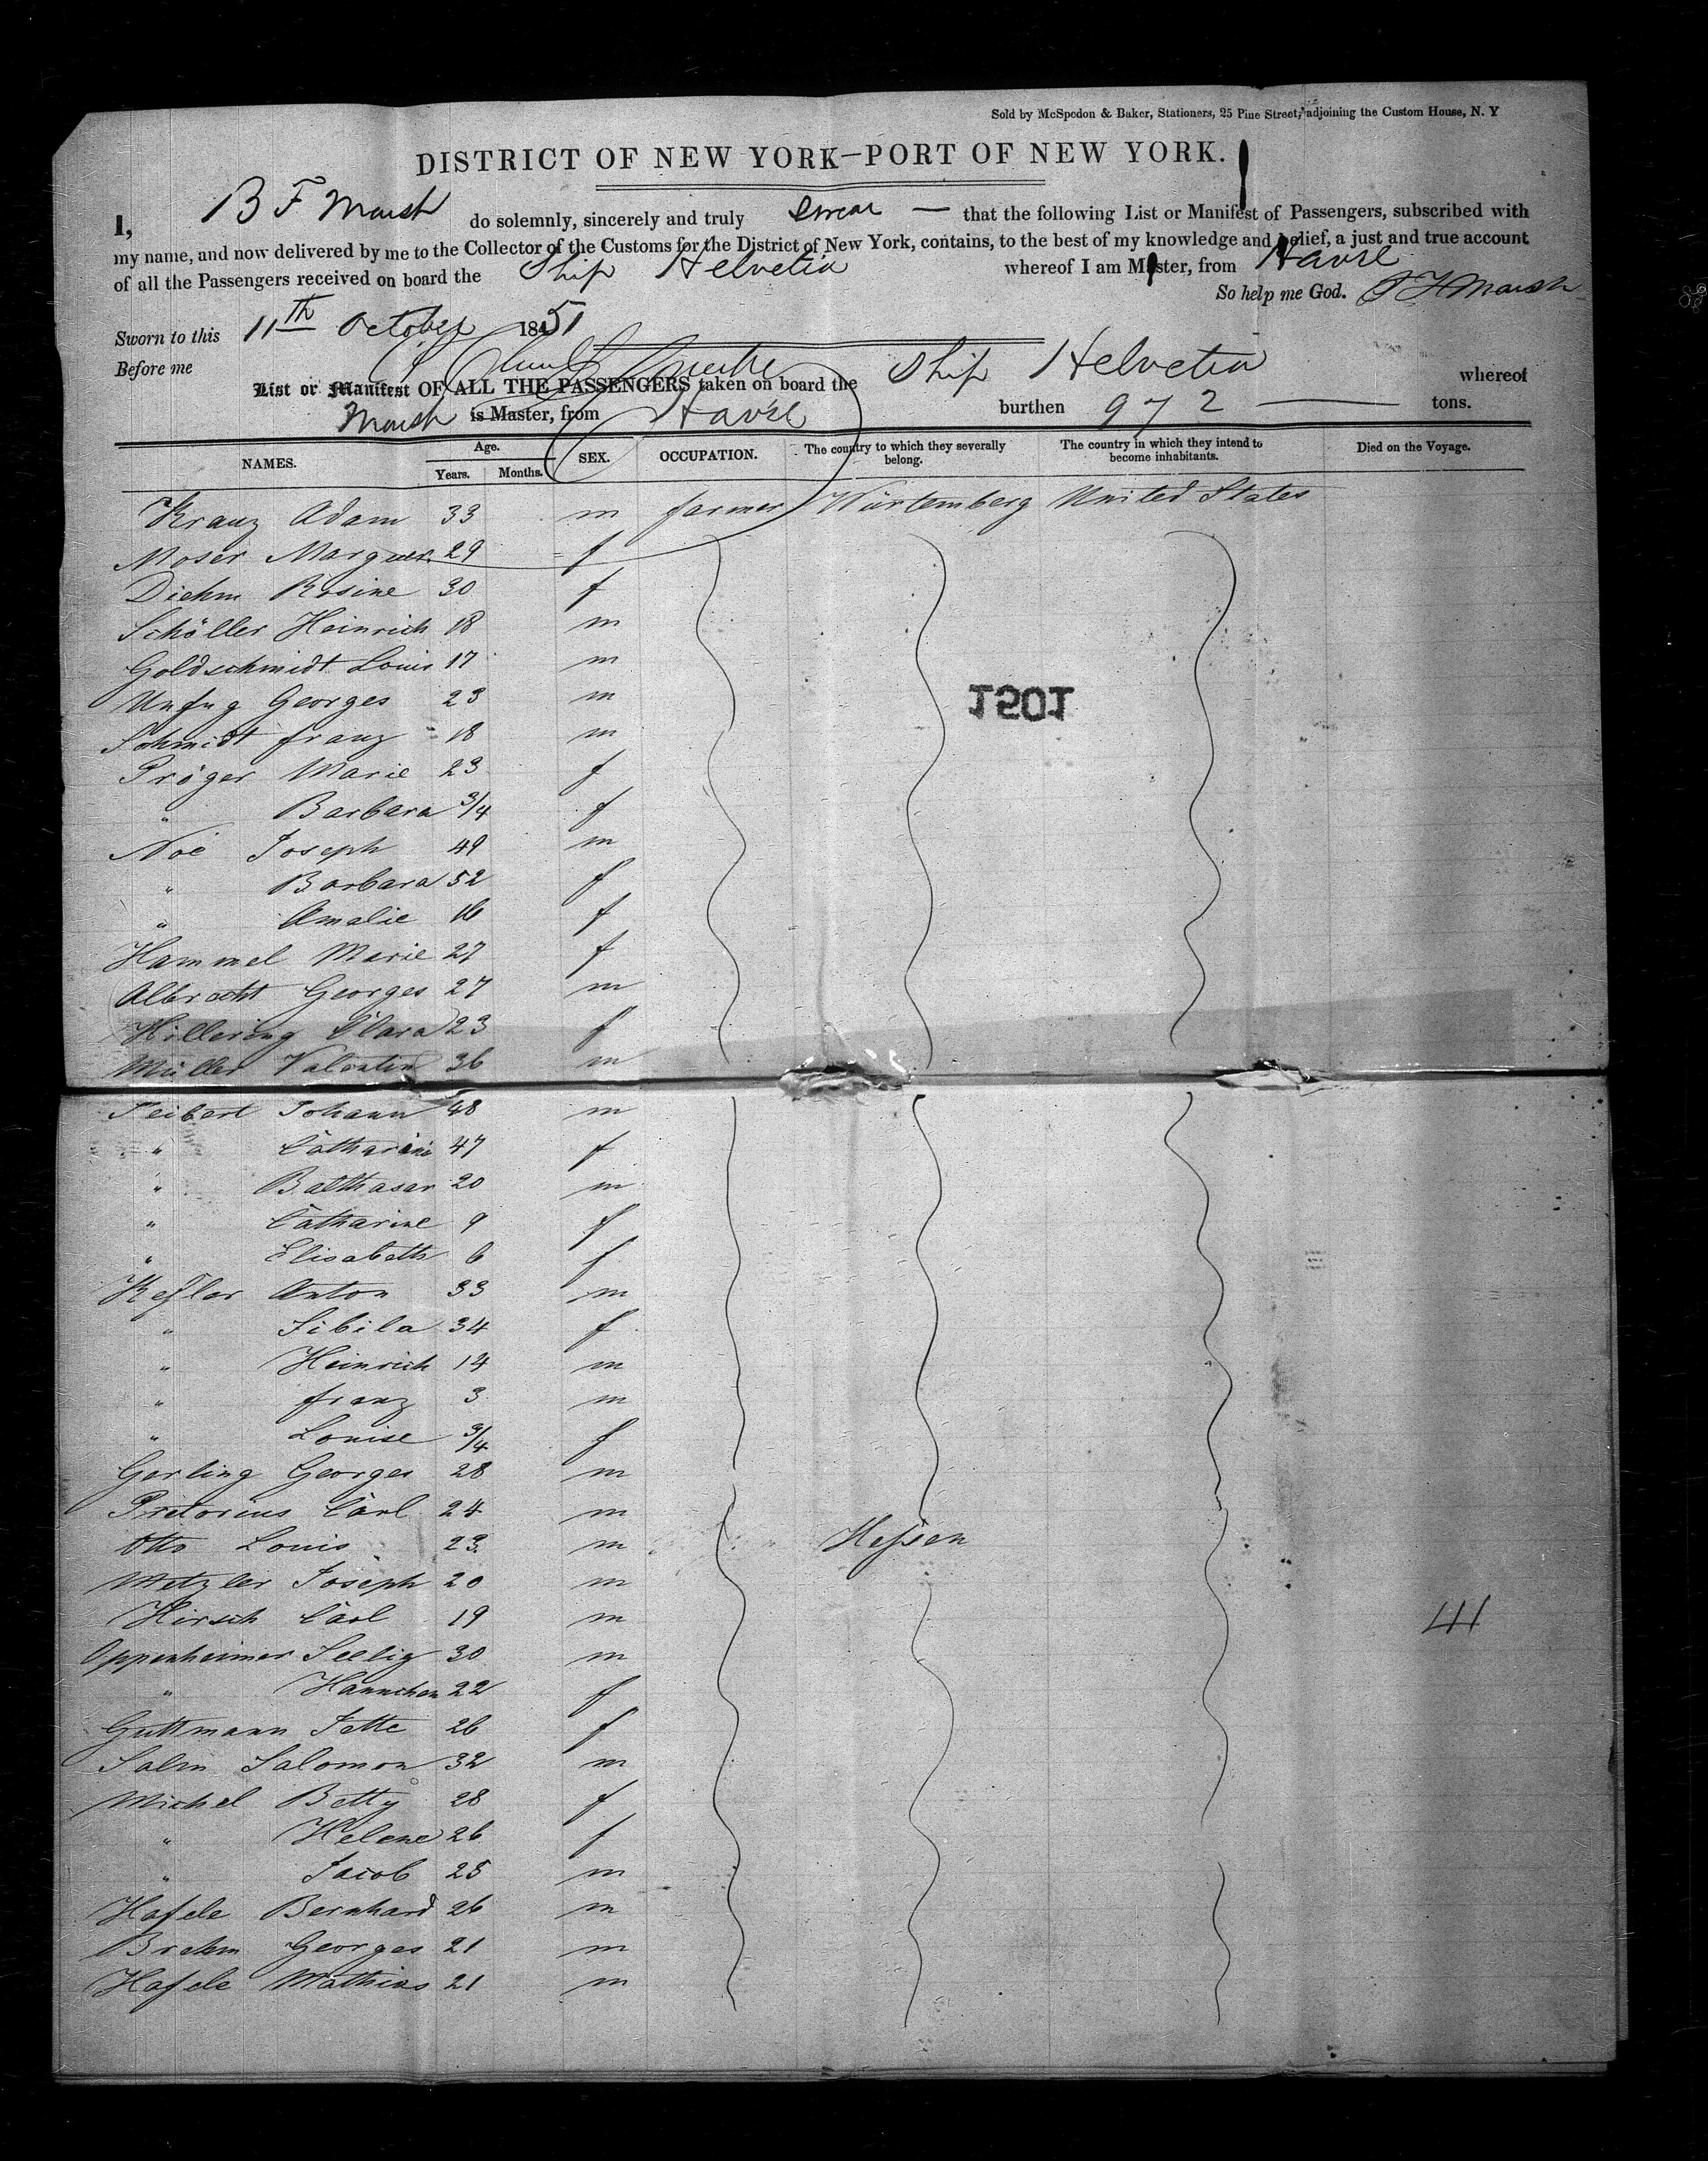 Sold by McSpedon & Baker, Stationers, 25 Pine Street, adjoining the Custom House, N. Y
DISTRICT OF NEW YORK—PORT OF NEW YORK.
I, B F Marsh do solemnly, sincerely and truly swear — that the following List or Manifest of Passengers, subscribed with
my name, and now delivered by me to the Collector of the Customs for the District of New York, contains, to the best of my knowledge and belief, a just and true account
of all the Passengers received on board the Ship Helvetia whereof I am Master, from Havre
So help me God. B F Marsh
Sworn to this 11th October 1851
Before me
List or Manifest OF ALL THE PASSENGERS taken on board the Ship Helvetia whereof
Marsh is Master, from Havre burthen 972 tons.
NAMES. Age. Years. Months. SEX. OCCUPATION. The country to which they severally belong. The country in which they intend to become inhabitants. Died on the Voyage.
Kranz Adam 33 m farmer Würtemberg United States
Moser Marguer. 29 f
Diehm Rosine 30 f
Schöller Heinrich 18 m
Goldschmidt Louis 17 m
Unfug Georges 23 m
1501
Schmidt franz 18 m
Pröger Marie 23 f
" Barbara 3/4 f
Noé Joseph 49 m
" Barbara 52 f
" Amalie 16 f
Hammel Marie 27 f
Albrecht Georges 27 m
Hillering Clara 23 f
Müller Valentin 36 m
Seibert Johann 48 m
" Catharine 47 f
" Balthasar 20 m
" Catharine 9 f
" Elisabeth 6 f
Keßler Anton 33 m
" Sibila 34 f
" Heinrich 14 m
" franz 3 m
" Louise 3/4 f
Gerling Georges 28 m
Pretorius Carl 24 m
Otto Louis 23 m Heßen
Metzler Joseph 20 m
Hirsch Carl 19 m
41
Oppenheimer Seelig 30 m
" Hannchen 22 f
Guttmann Jette 26 f
Salm Salomon 32 m
Michel Betty 28 f
" Helene 26 f
" Jacob 25 m
Hafele Bernhard 26 m
Brehm Georges 21 m
Hafele Mathias 21 m